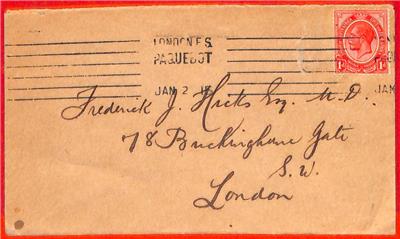 LONDON F.S.
PAQUEBOT
JAN 2
Frederick J. Hicks Esq. M.D.
78 Buckinghame Gate
S.W.
London